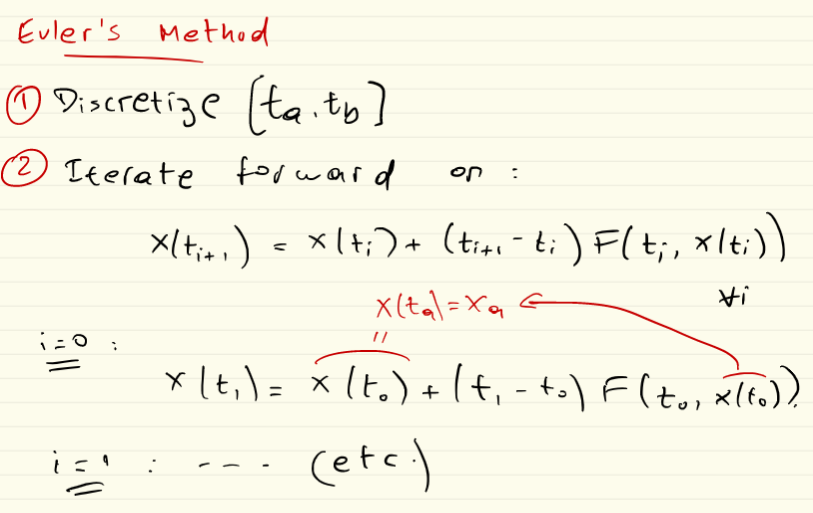 Euler's Method
① Discretize [ta, tb]
② Iterate forward on :
x(ti+1) = x(ti) + (ti+1 - ti) F(ti, x(ti))
∀i
x(ta) = xa
i=0 :
"
x(t1) = x(t0) + (t1 - t0) F(t0, x(t0))
i=1 : ---- (etc.)